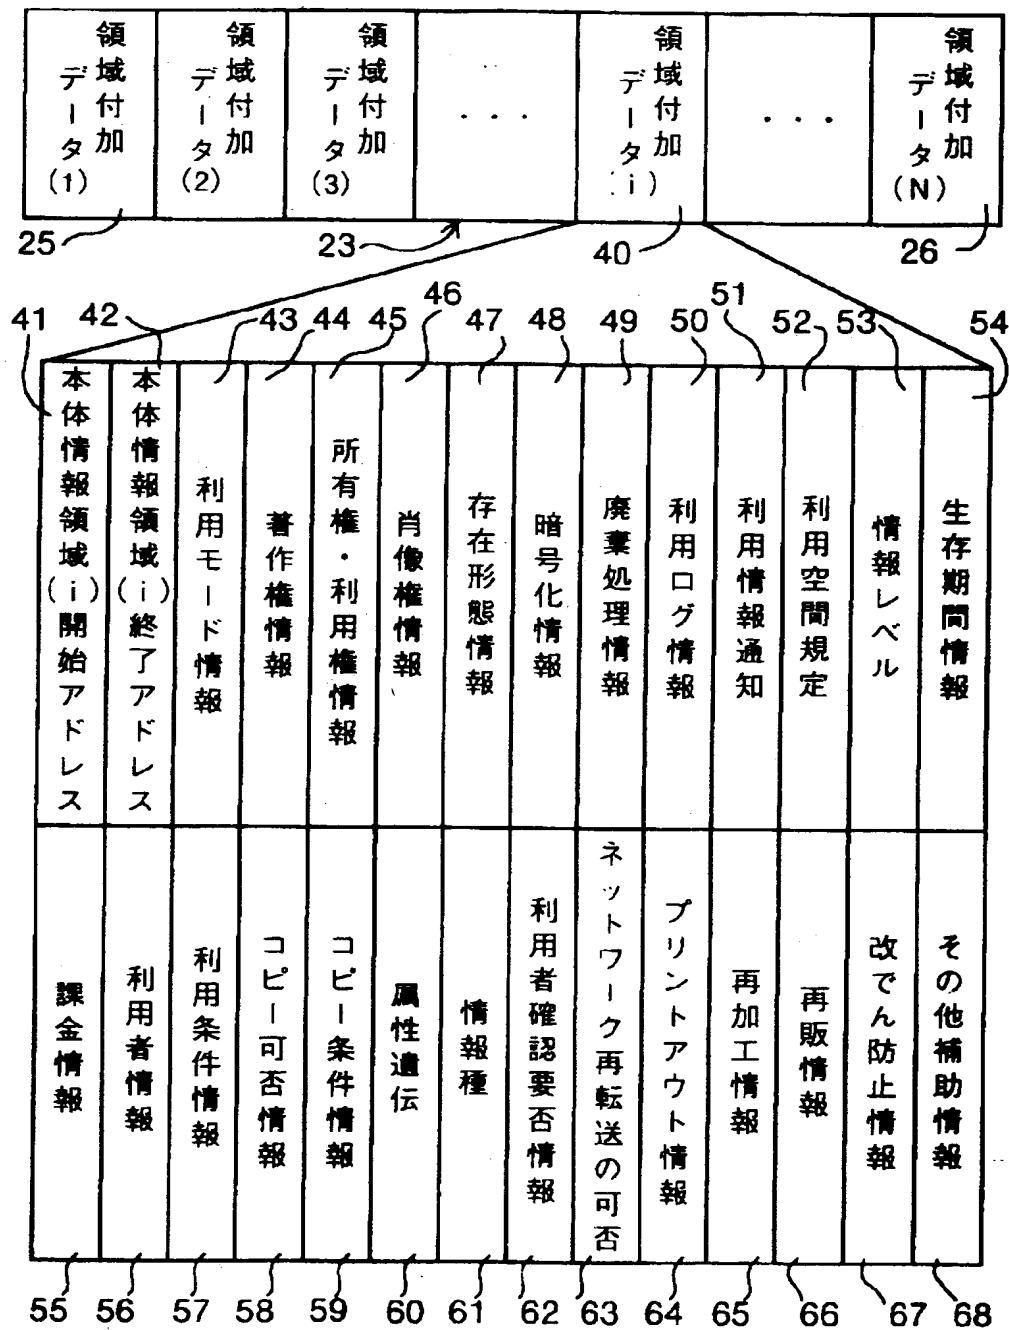 領域付加
データ(1)
領域付加
データ(2)
領域付加
データ(3)
・・・
領域付加
データ(i)
・・・
領域付加
データ(N)
25
23
40
26
41
42
43
44
45
46
47
48
49
50
51
52
53
54
本体情報領域(i)開始アドレス
本体情報領域(i)終了アドレス
利用モード情報
著作権情報
所有権・利用権情報
肖像権情報
存在形態情報
暗号化情報
廃棄処理情報
利用ログ情報
利用情報通知
利用空間規定
情報レベル
生存期間情報
課金情報
利用者情報
利用条件情報
コピー可否情報
コピー条件情報
属性遺伝
情報種
利用者確認要否情報
ネットワーク再転送の可否
プリントアウト情報
再加工情報
再販情報
改でん防止情報
その他補助情報
55
56
57
58
59
60
61
62
63
64
65
66
67
68